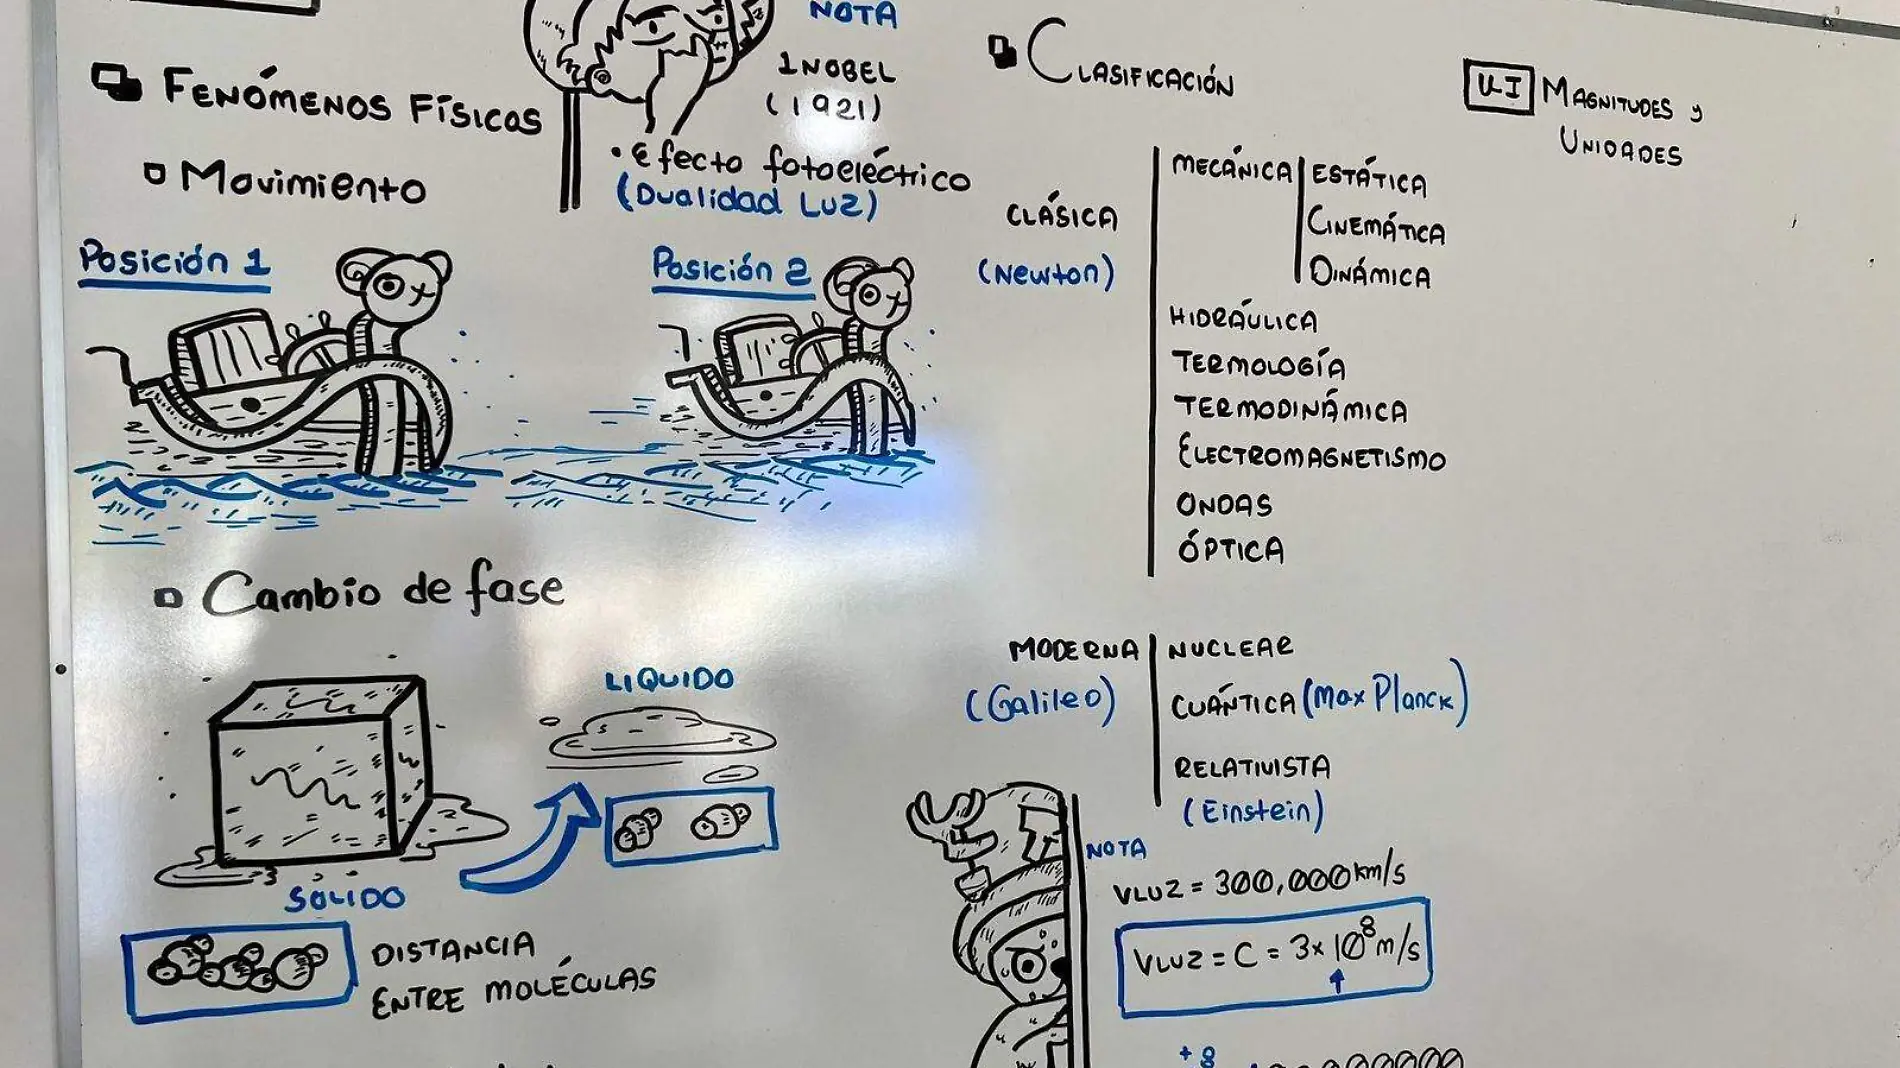 NOTA
1 NOBEL
(1921)
• Efecto fotoeléctrico
(Dualidad Luz)
FENÓMENOS FÍSICOS
Movimiento
Posición 1
Posición 2
Cambio de fase
LIQUIDO
SÓLIDO
DISTANCIA
ENTRE MOLÉCULAS
CLASIFICACIÓN
CLÁSICA
(Newton)
MECÁNICA
ESTÁTICA
CINEMÁTICA
DINÁMICA
HIDRÁULICA
TERMOLOGÍA
TERMODINÁMICA
ELECTROMAGNETISMO
ONDAS
ÓPTICA
MODERNA
(Galileo)
NUCLEAR
CUÁNTICA (Max Planck)
RELATIVISTA
(Einstein)
NOTA
VLUZ = 300,000 km/s
VLUZ = C = 3 x 10⁸ m/s
+8
U-I MAGNITUDES y
UNIDADES